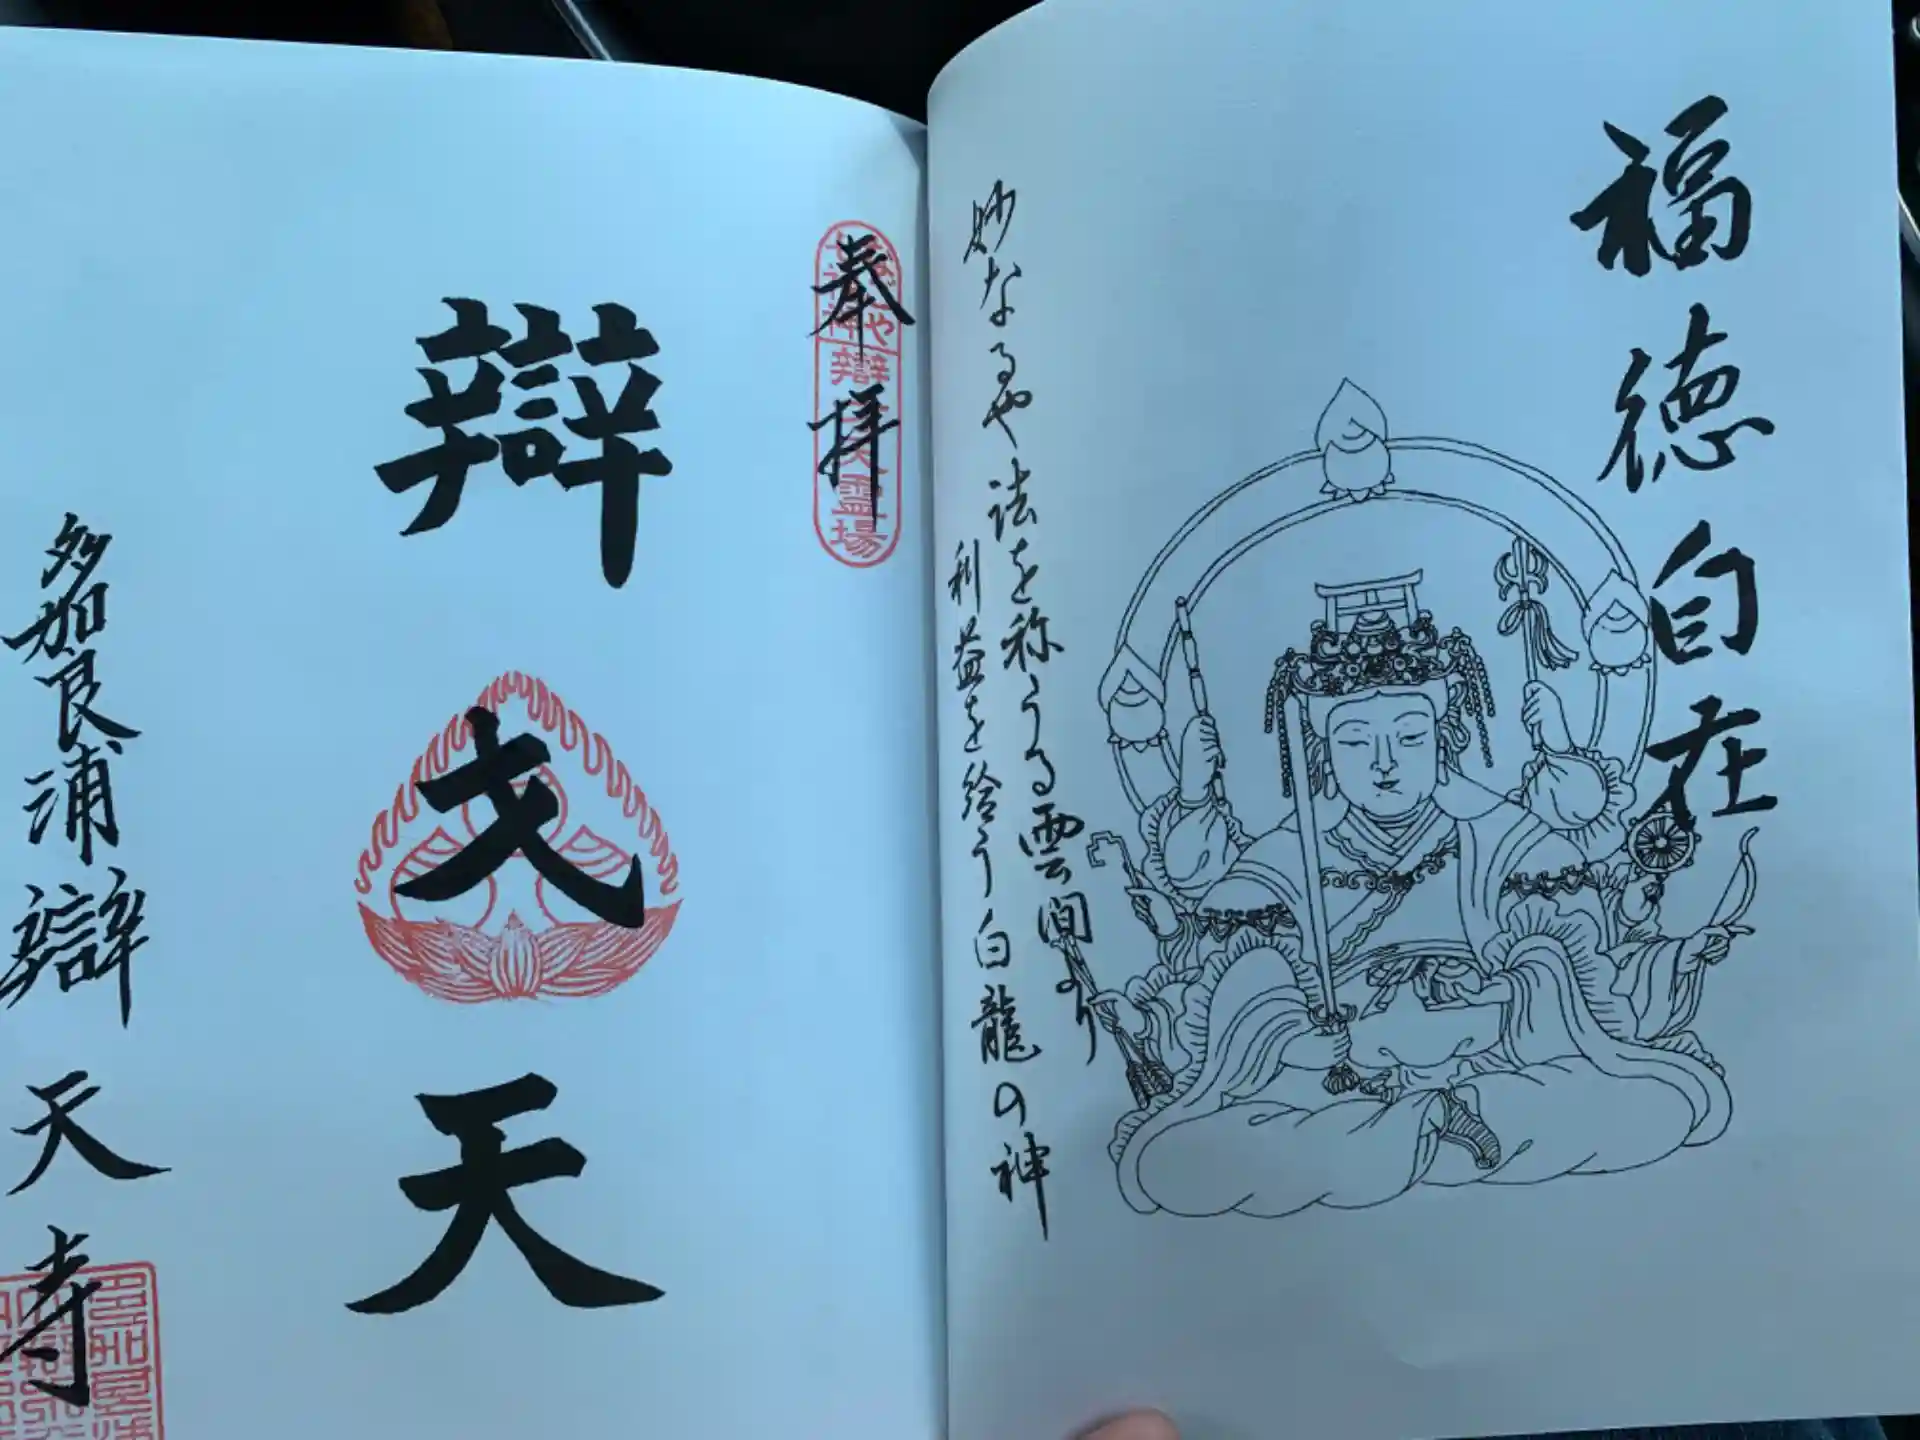 福徳自在
妙なるや法を称うる雲間より
利益を給う白龍の神
奉拝
辯才天霊場
辯才天
多加良浦辯天寺